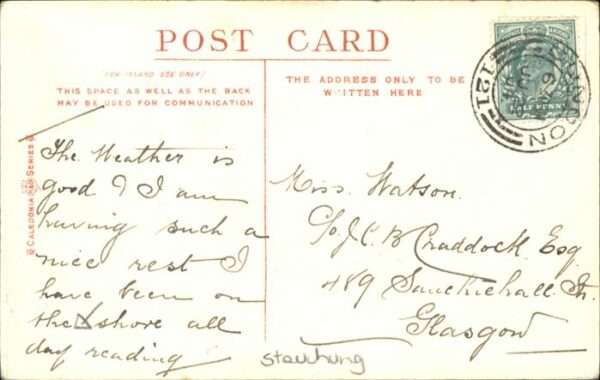 POST CARD
(FOR INLAND USE ONLY)
THIS SPACE AS WELL AS THE BACK
MAY BE USED FOR COMMUNICATION
THE ADDRESS ONLY TO BE
WRITTEN HERE
HALF PENNY
121
CALEDONIA SERIES
The Weather is
good & I am
having such a
nice rest I
have been on
the shore all
day reading
Miss Watson.
C/o J. C. B. Craddock Esq
489 Sauchiehall St.
Glasgow